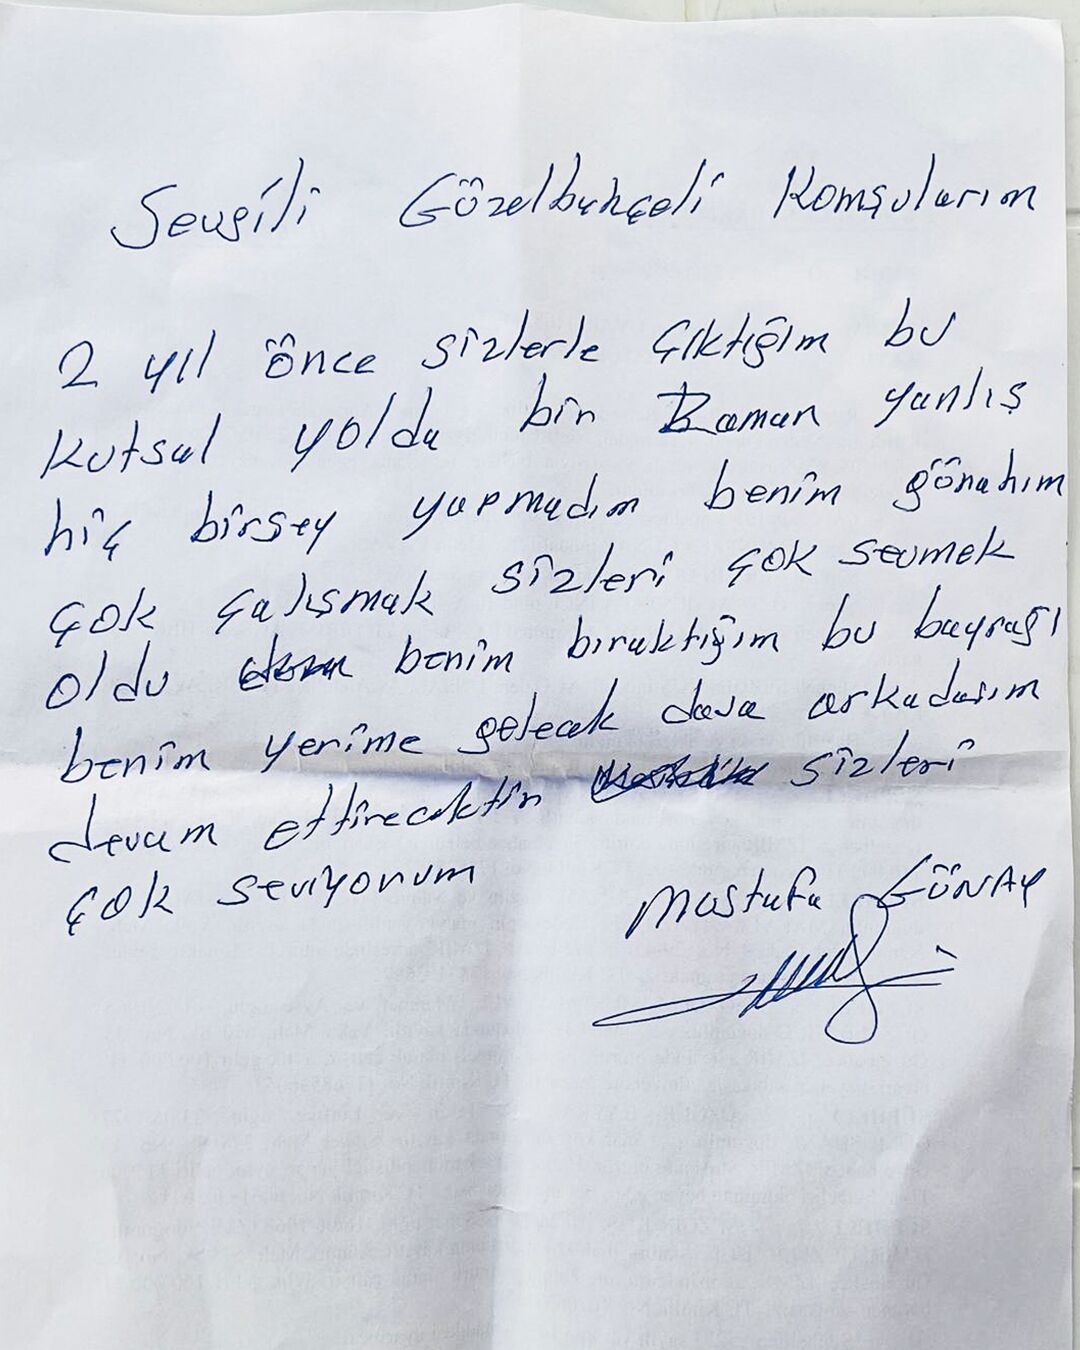 Sevgili Güzelbahçeli Komşularım
2 yıl önce sizlerle çıktığım bu
kutsal yolda bir zaman yanlış
hiç birşey yapmadım benim günahım
çok çalışmak sizleri çok sevmek
oldu benim bıraktığım bu bayrağı
benim yerime gelecek dava arkadaşım
devam ettirecektir sizleri
çok seviyorum
Mustafa GÜNAY